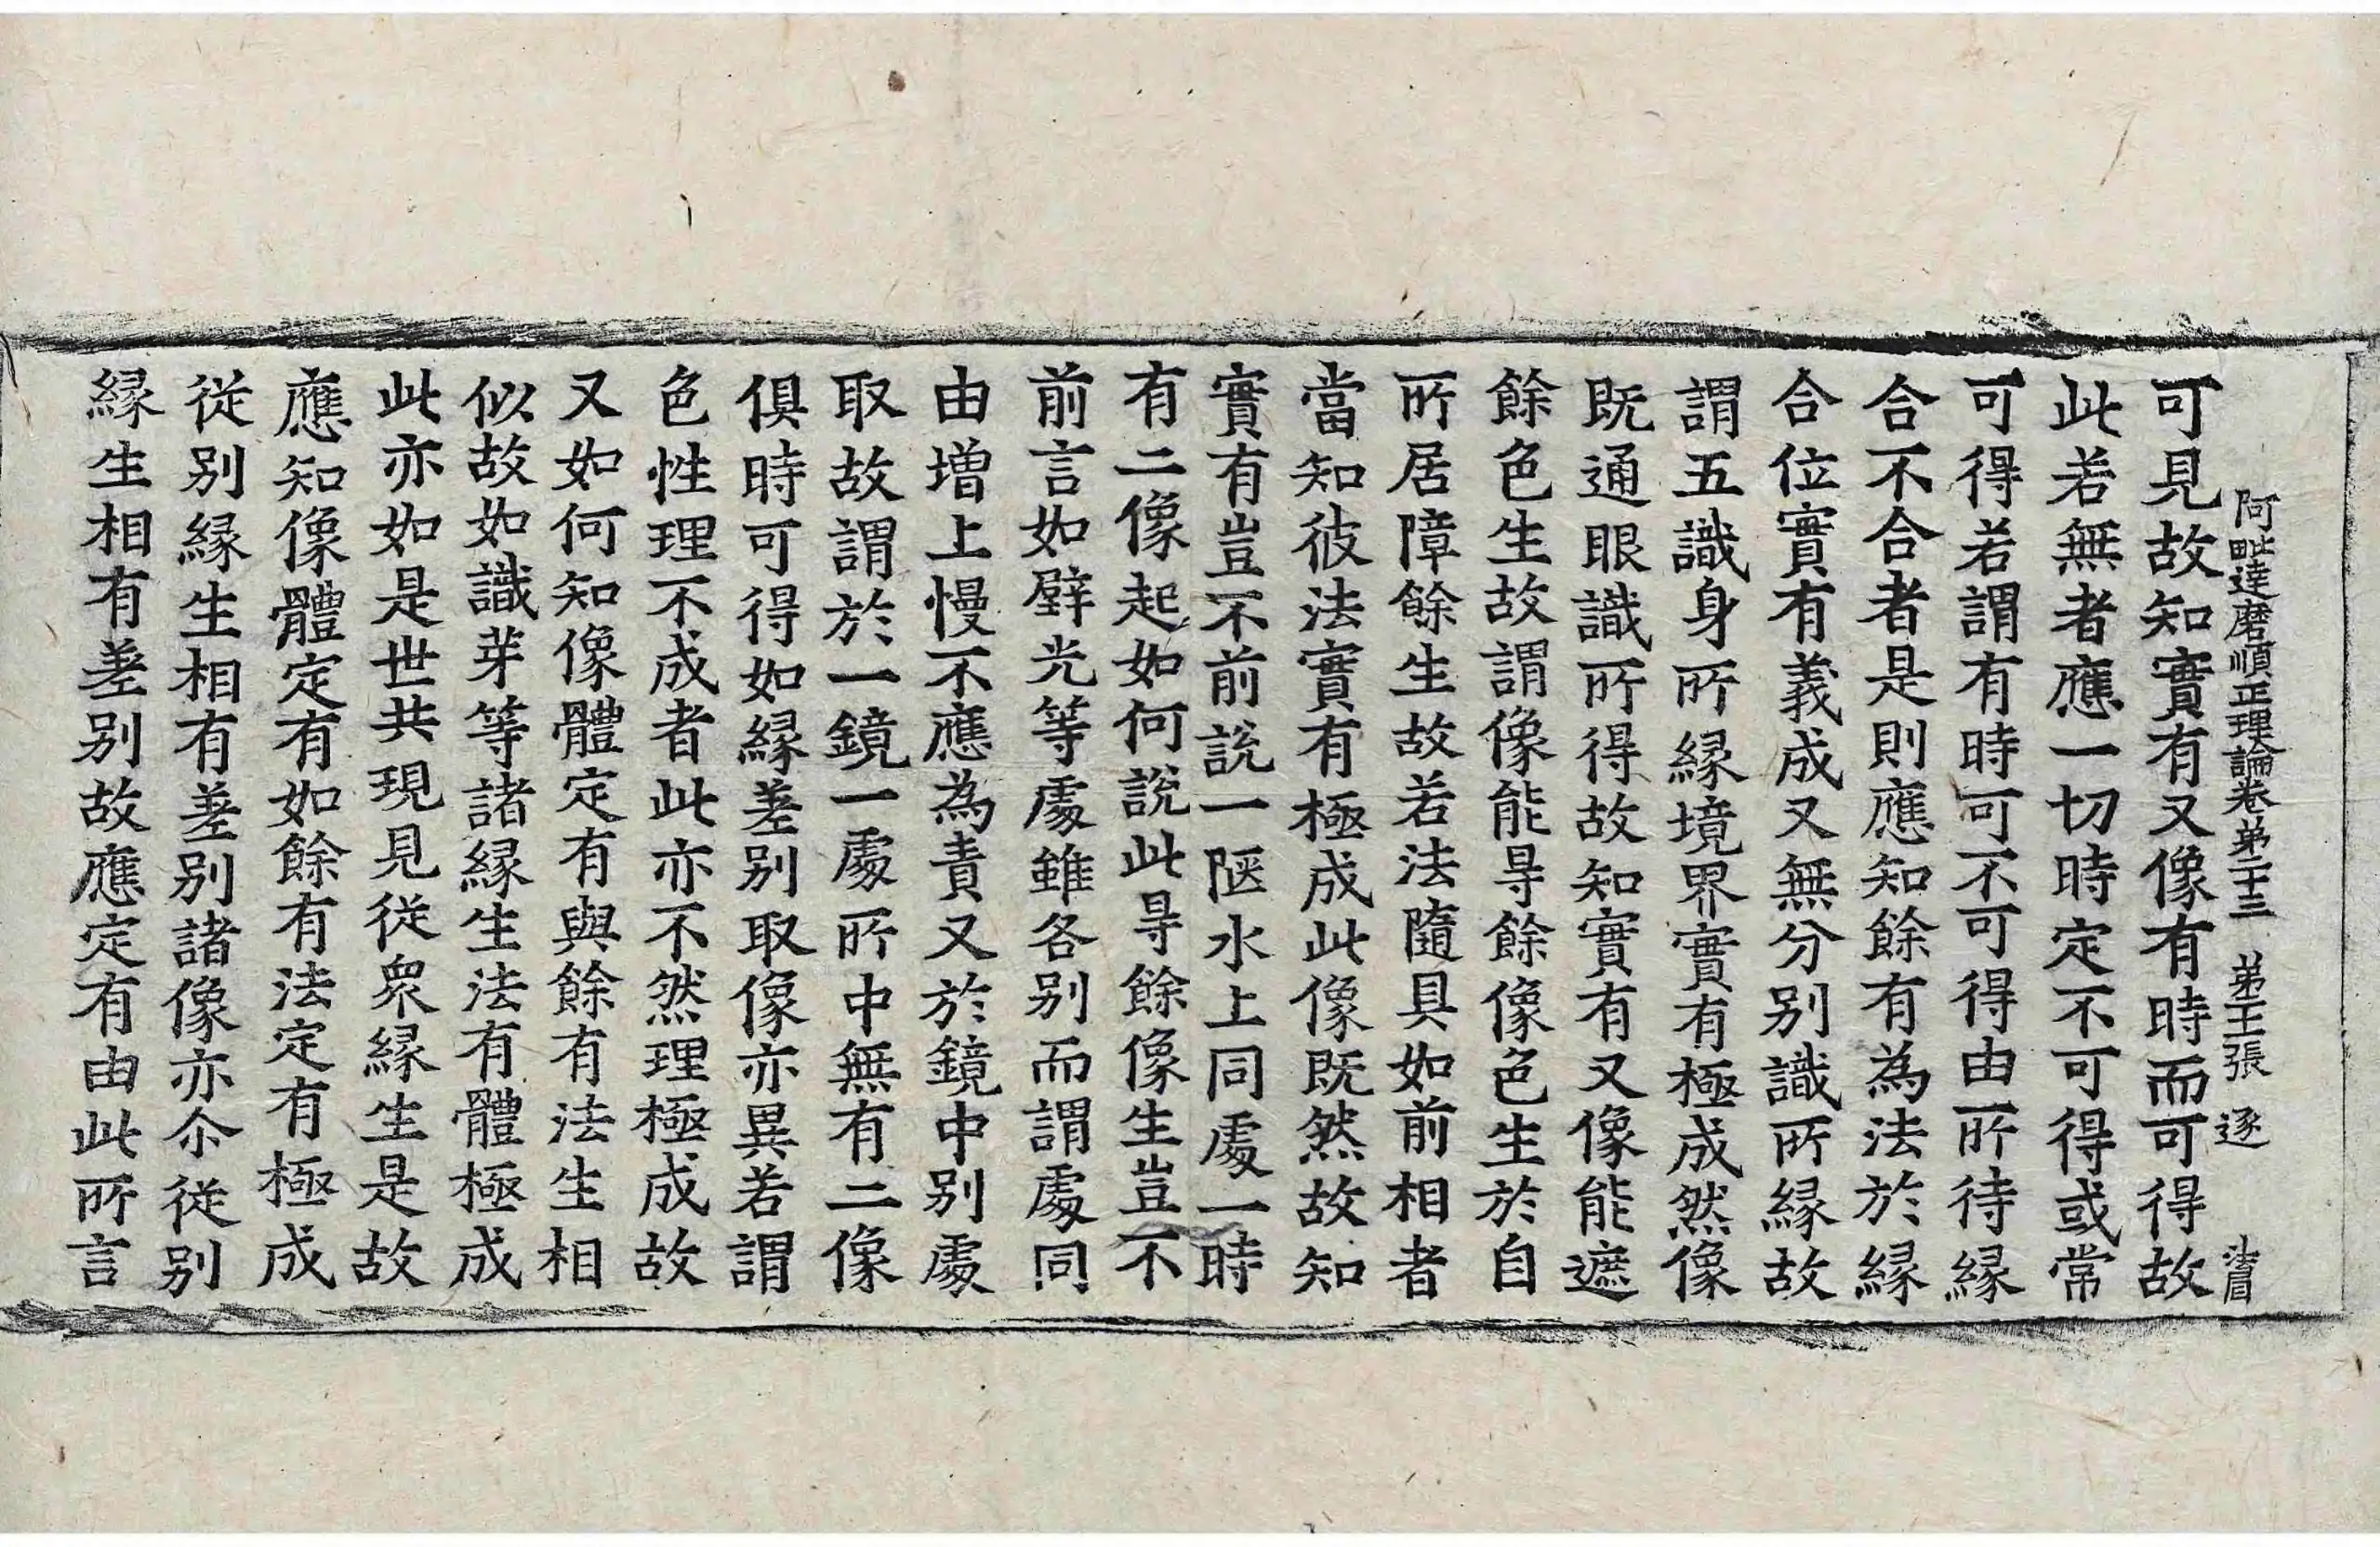 阿毗達磨順正理論卷第二十三 第十二張 逐
可見故知實有又像有時而可得故
此若無者應一切時定不可得或常
可得若謂有時可不可得由所待緣
合不合者是則應知餘有為法於緣
合位實有義成又無分別識所緣故
謂五識身所緣境界實有極成然像
既通眼識所得故知實有又像能遮
餘色生故謂像能㝵餘像色生於自
所居障餘生故若法隨具如前相者
當知彼法實有極成此像既然故知
實有豈不前說一陿水上同處一時
有二像起如何說此㝵餘像生豈不
前言如壁光等處雖各別而謂處同
由增上慢不應為責又於鏡中別處
取故謂於一鏡一處所中無有二像
俱時可得如緣差別取像亦異若謂
色性理不成者此亦不然理極成故
又如何知像體定有與餘有法生相
似故如識芽等諸緣生法有體極成
此亦如是世共現見從眾緣生是故
應知像體定有如餘有法定有極成
從別緣生相有差別諸像亦尒從別
緣生相有差別故應定有由此所言